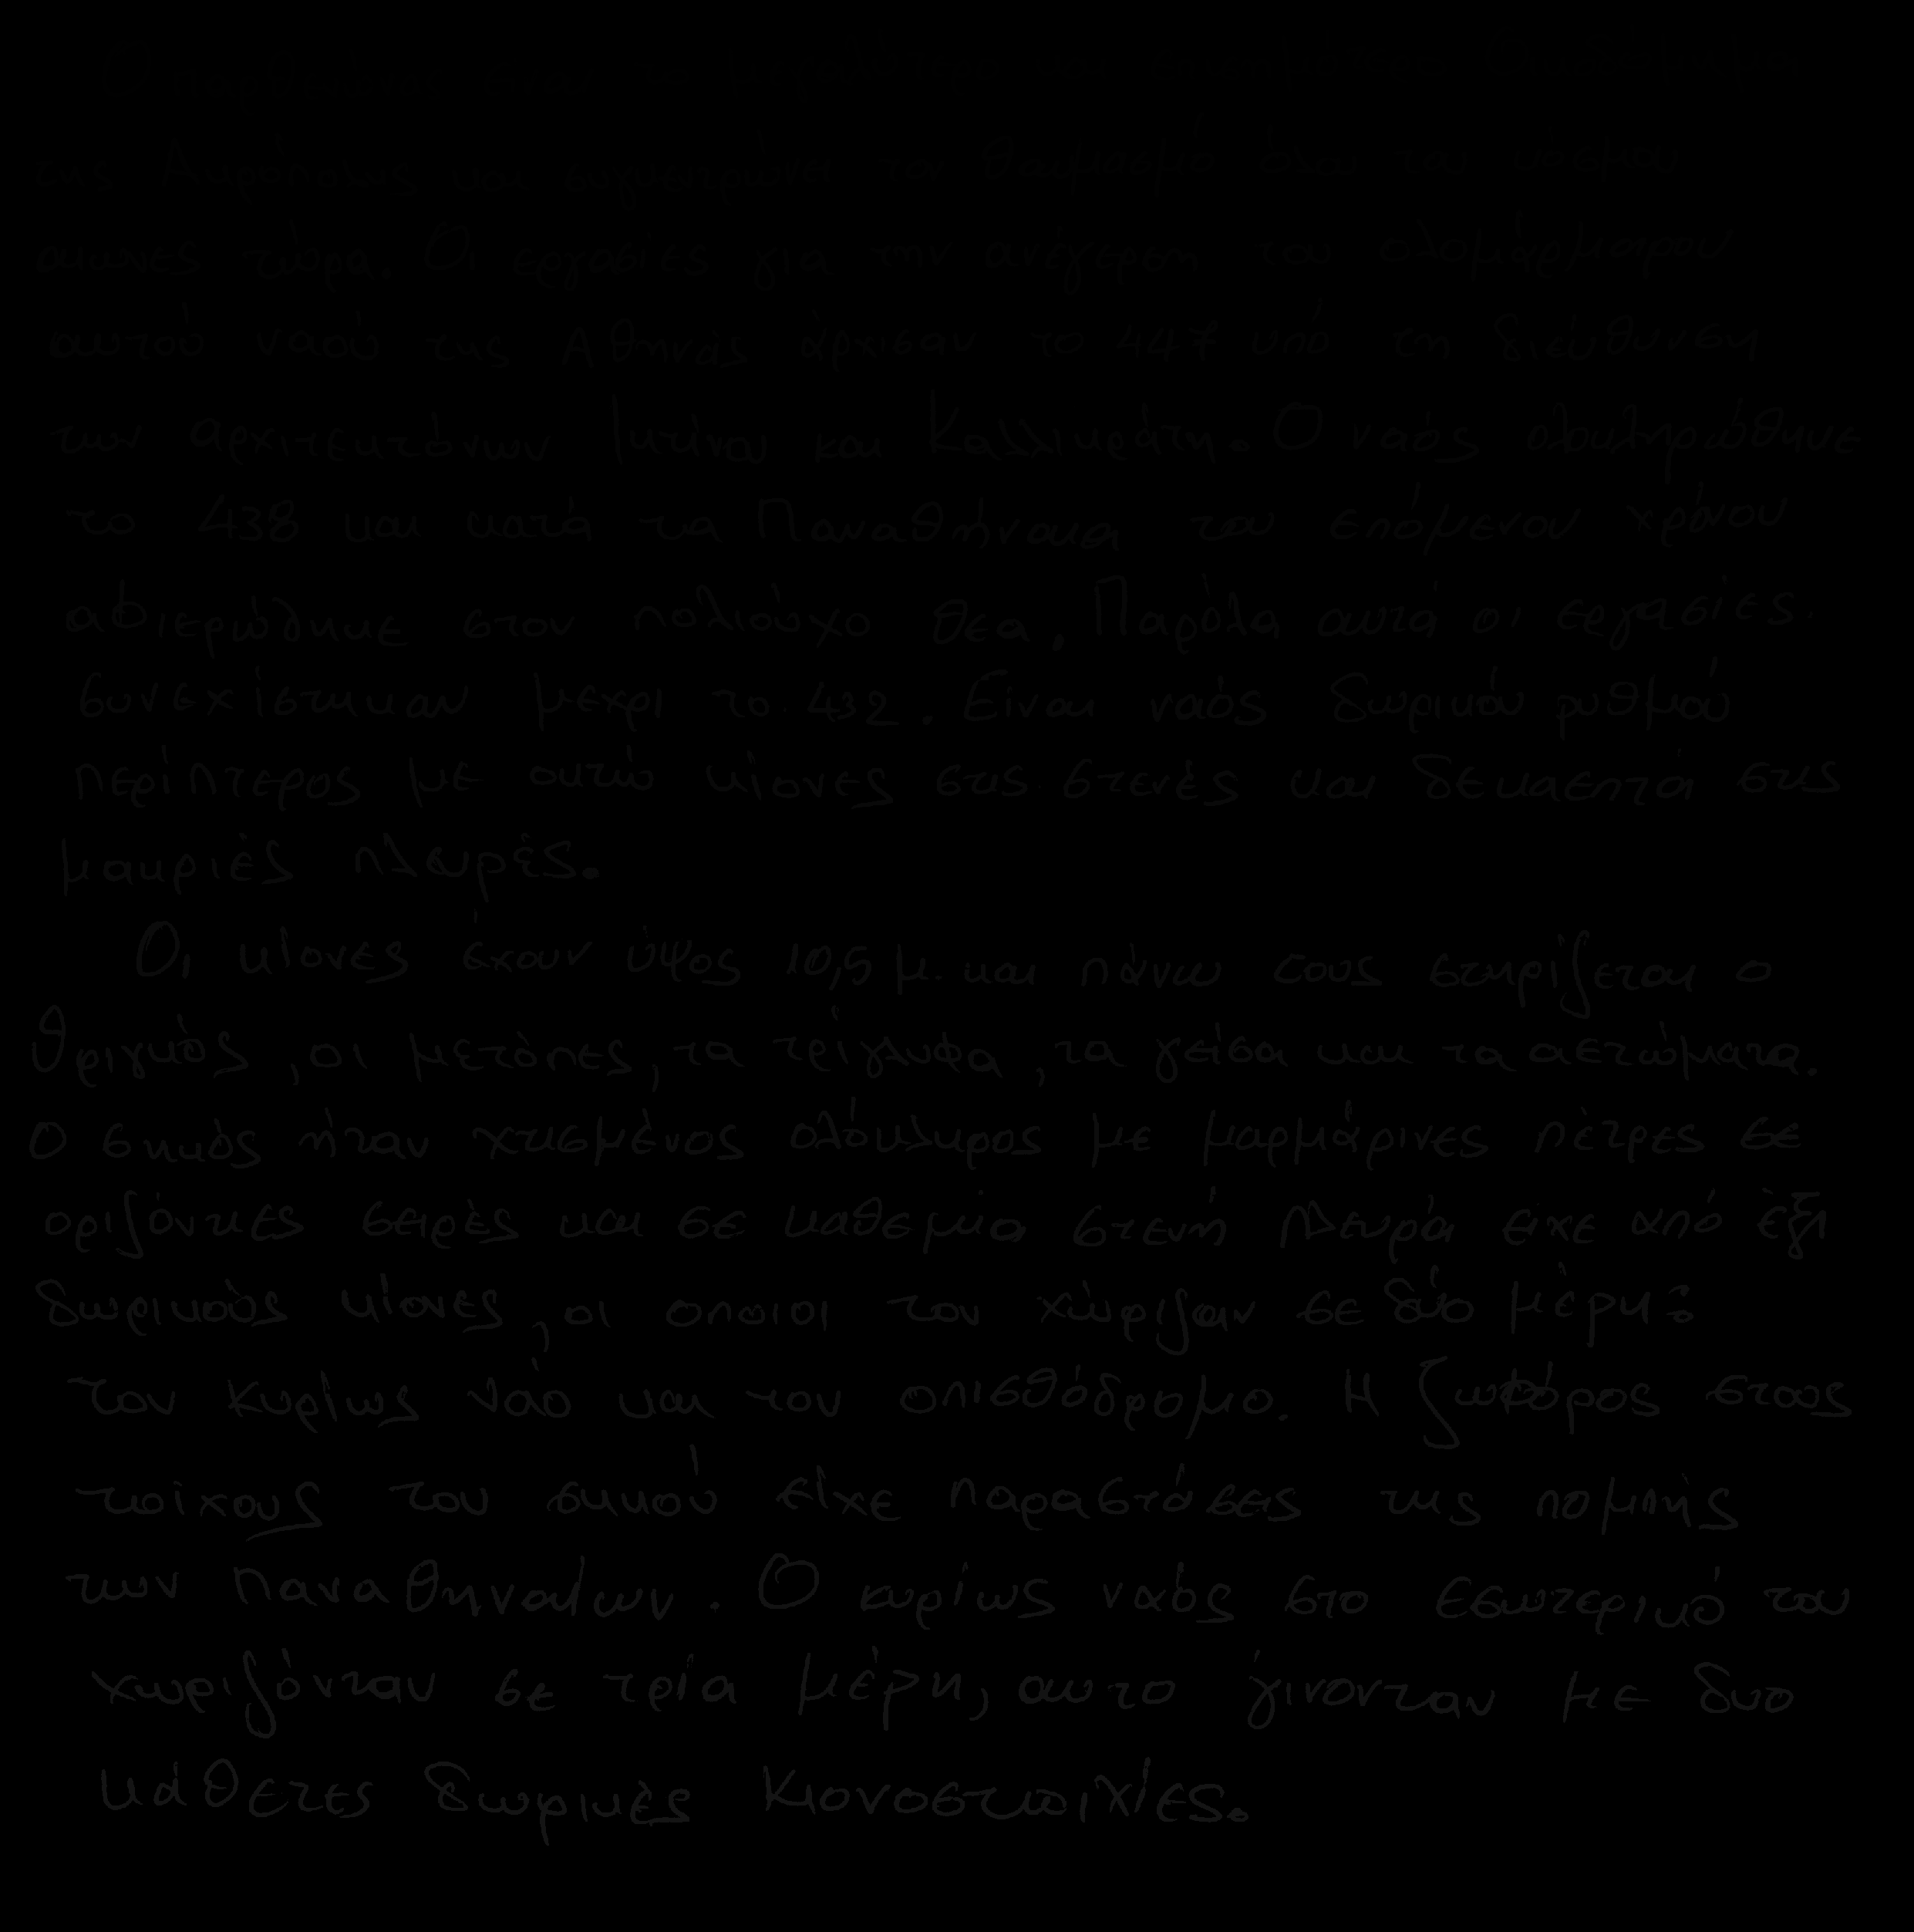 Ο Παρθενώνας είναι το
της Ακρόπολης και συγκεντρώνει τον θαυμασμό όλου του κόσμου
ακόμες τώρα. Οι εργασίες για την ανέγερση του ολομάρμαρου
αυτού ναού της Αθηνάς άρχισαν το 447 υπό τη διεύθυνση
των αρχιτεκτόνων Ικτίνου και Καλλικράτη. Ο ναός ολοκληρώθηκε
το 438 και κατά τα Παναθήναια του επόμενου χρόνου
αφιερώθηκε στον πολιούχο θεα. Παρόλα αυτά οι εργασίες.
συνεχίστηκαν μεχρι το 432. Είναι ναός δωρικού ρυθμού
περίπτερος με οκτώ κίονες στις στενές και δεκαεπτά στις
μακριές πλευρές.
Οι κίονες έχουν ύψος 10,5 μ. και πάνω τους στηρίζεται ο
θριγκός, οι μετόπες, τα τρίγλυφα, τα γείσα και τα αετώματα.
Ο σηκός ήταν χτισμένος ολόκληρος με μαρμάρινες πέτρες σε
οριζόντιες σειρές και σε καθεμία στενή πλευρά ειχε από έξι
δωρικούς κίονες, οι οποιοι τον χώριζαν σε δύο μέρη:
τον κυρίως ναό και τον οπισθόδρομο. Η ζωφόρος στους
τοίχους του σηκού είχε παραστάσεις της πομπής
των Παναθηναίων. Ο κυρίως ναός στο εσωτερικό του
χωριζόνταν σε τρία μέρη, αυτο γίνονταν με δυο
κάθετες δωρικές κιονοστοιχίες.